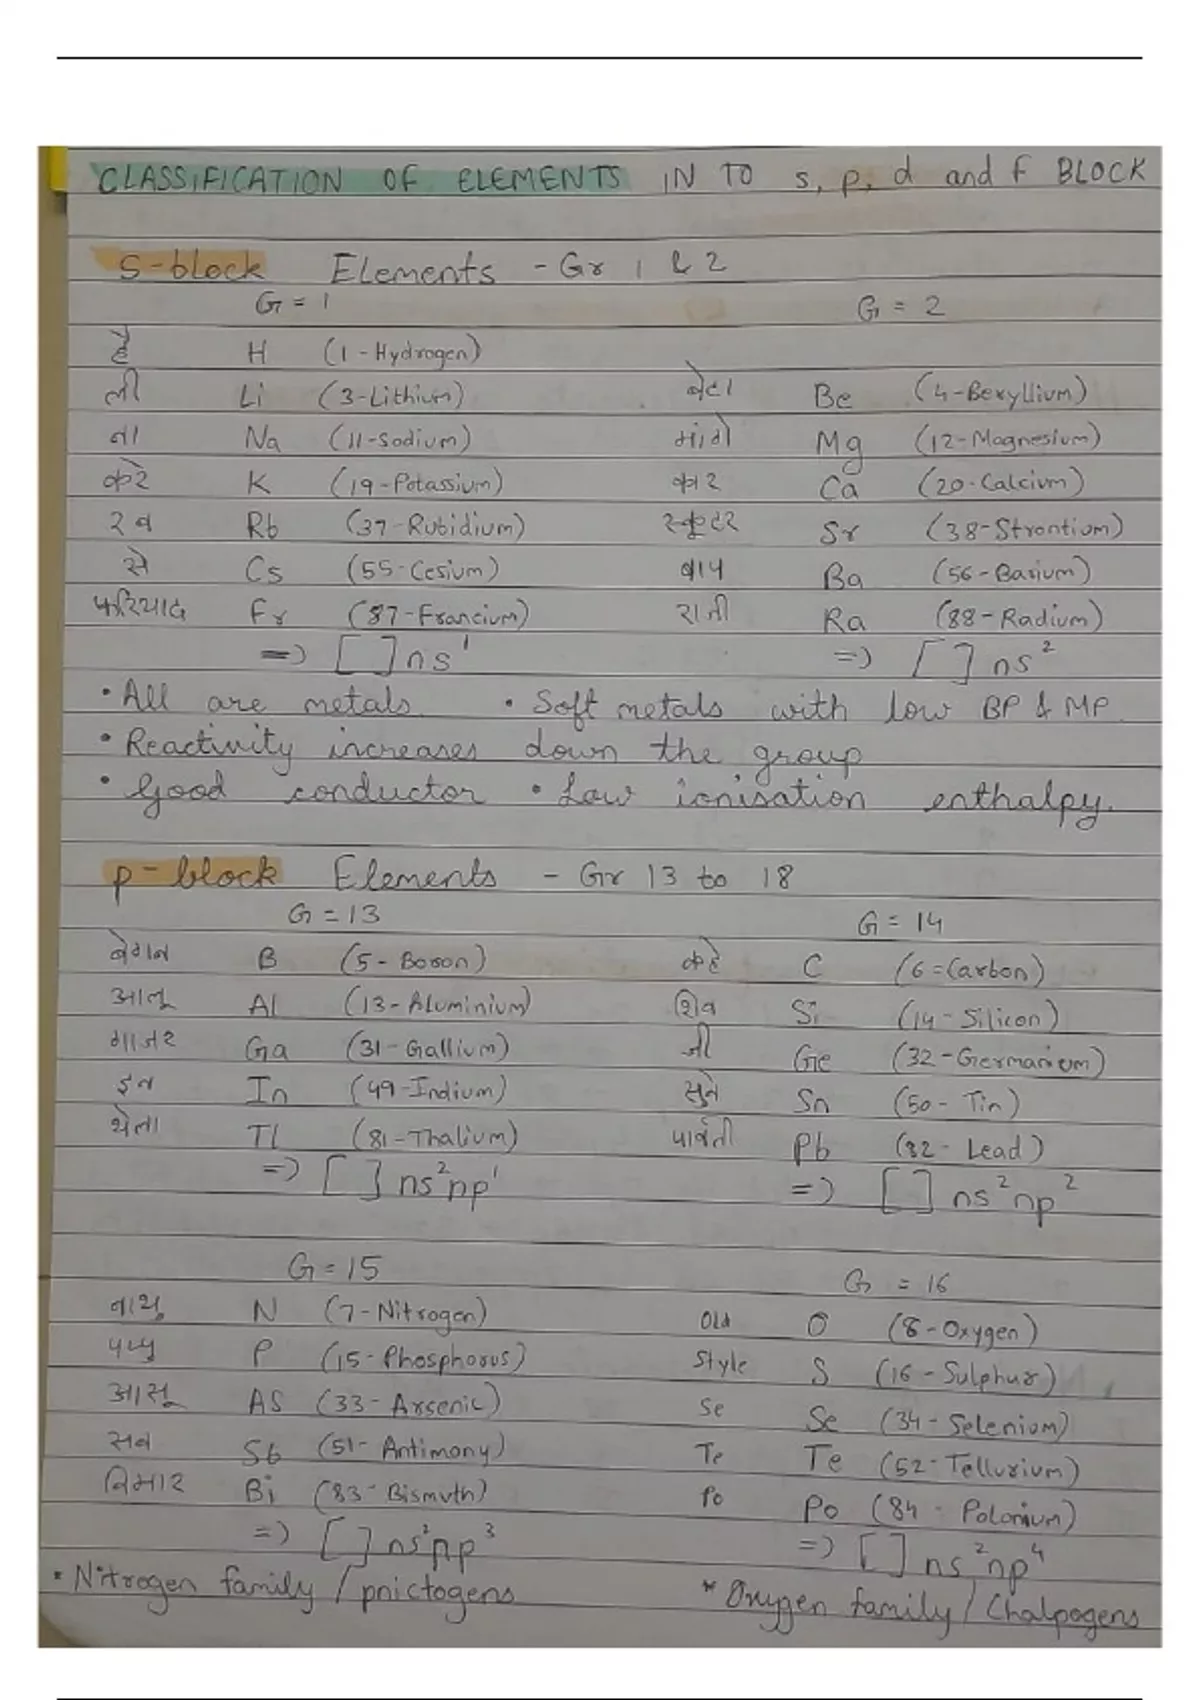 CLASSIFICATION OF ELEMENTS IN TO s, p, d and f BLOCK
S-block Elements - Gr 1 & 2
G = 1 G = 2
है H (1-Hydrogen)
ली Li (3-Lithium) बेटा Be (4-Beryllium)
ना Na (11-Sodium) मांगे Mg (12-Magnesium)
करे K (19-Potassium) कार Ca (20-Calcium)
रब Rb (37-Rubidium) स्कूटर Sr (38-Strontium)
से Cs (55-Cesium) बाप Ba (56-Barium)
फरियाद Fr (87-Francium) राती Ra (88-Radium)
=) [ ] ns¹ =) [ ] ns²
• All are metals • Soft metals with low BP & MP
• Reactivity increases down the group
• Good conductor • Low ionisation enthalpy.
p-block Elements - Gr 13 to 18
G = 13 G = 14
बेगन B (5-Boron) कहे C (6=Carbon)
आलू Al (13-Aluminium) शिव Si (14-Silicon)
गाजर Ga (31-Gallium) जी Ge (32-Germanium)
इन In (49-Indium) सुने Sn (50-Tin)
थेला Tl (81-Thalium) पार्वती Pb (82-Lead)
=) [ ] ns²np¹ =) [ ] ns²np²
G = 15 G = 16
नाथु N (7-Nitrogen) Old O (8-Oxygen)
पप्पु P (15-Phosphorus) Style S (16-Sulphur)
आसू AS (33-Arsenic) Se Se (34-Selenium)
सब Sb (51-Antimony) Te Te (52-Tellurium)
बिमार Bi (83-Bismuth) Po Po (84-Polonium)
=) [ ] ns²np³ =) [ ] ns²np⁴
• Nitrogen family / pnictogens * Oxygen family / Chalpogens